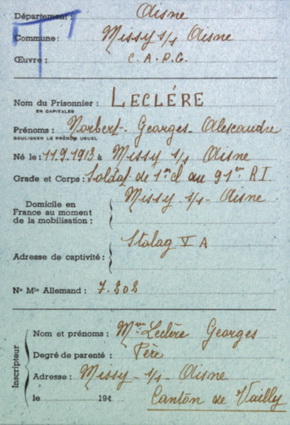 Département: Aisne
Commune: Missy s/s Aisne
Œuvre: C.A.P.G.
Nom du Prisonnier: LECLÉRE
EN CAPITALES
Prénoms: Norbert-Georges-Alexandre
SOULIGNER LE PRÉNOM USUEL
Né le: 11.9.1913 à Missy s/s Aisne
Grade et Corps: Soldat de 1re cl au 91me R.I
Domicile en France au moment de la mobilisation: Missy s/s- Aisne
Adresse de captivité: Stalag V A
No Mle Allemand: 7.202
Inscripteur
Nom et prénoms: Mr Leclère Georges
Degré de parenté: Père
Adresse: Missy s/s- Aisne
le 194 Canton de Vailly